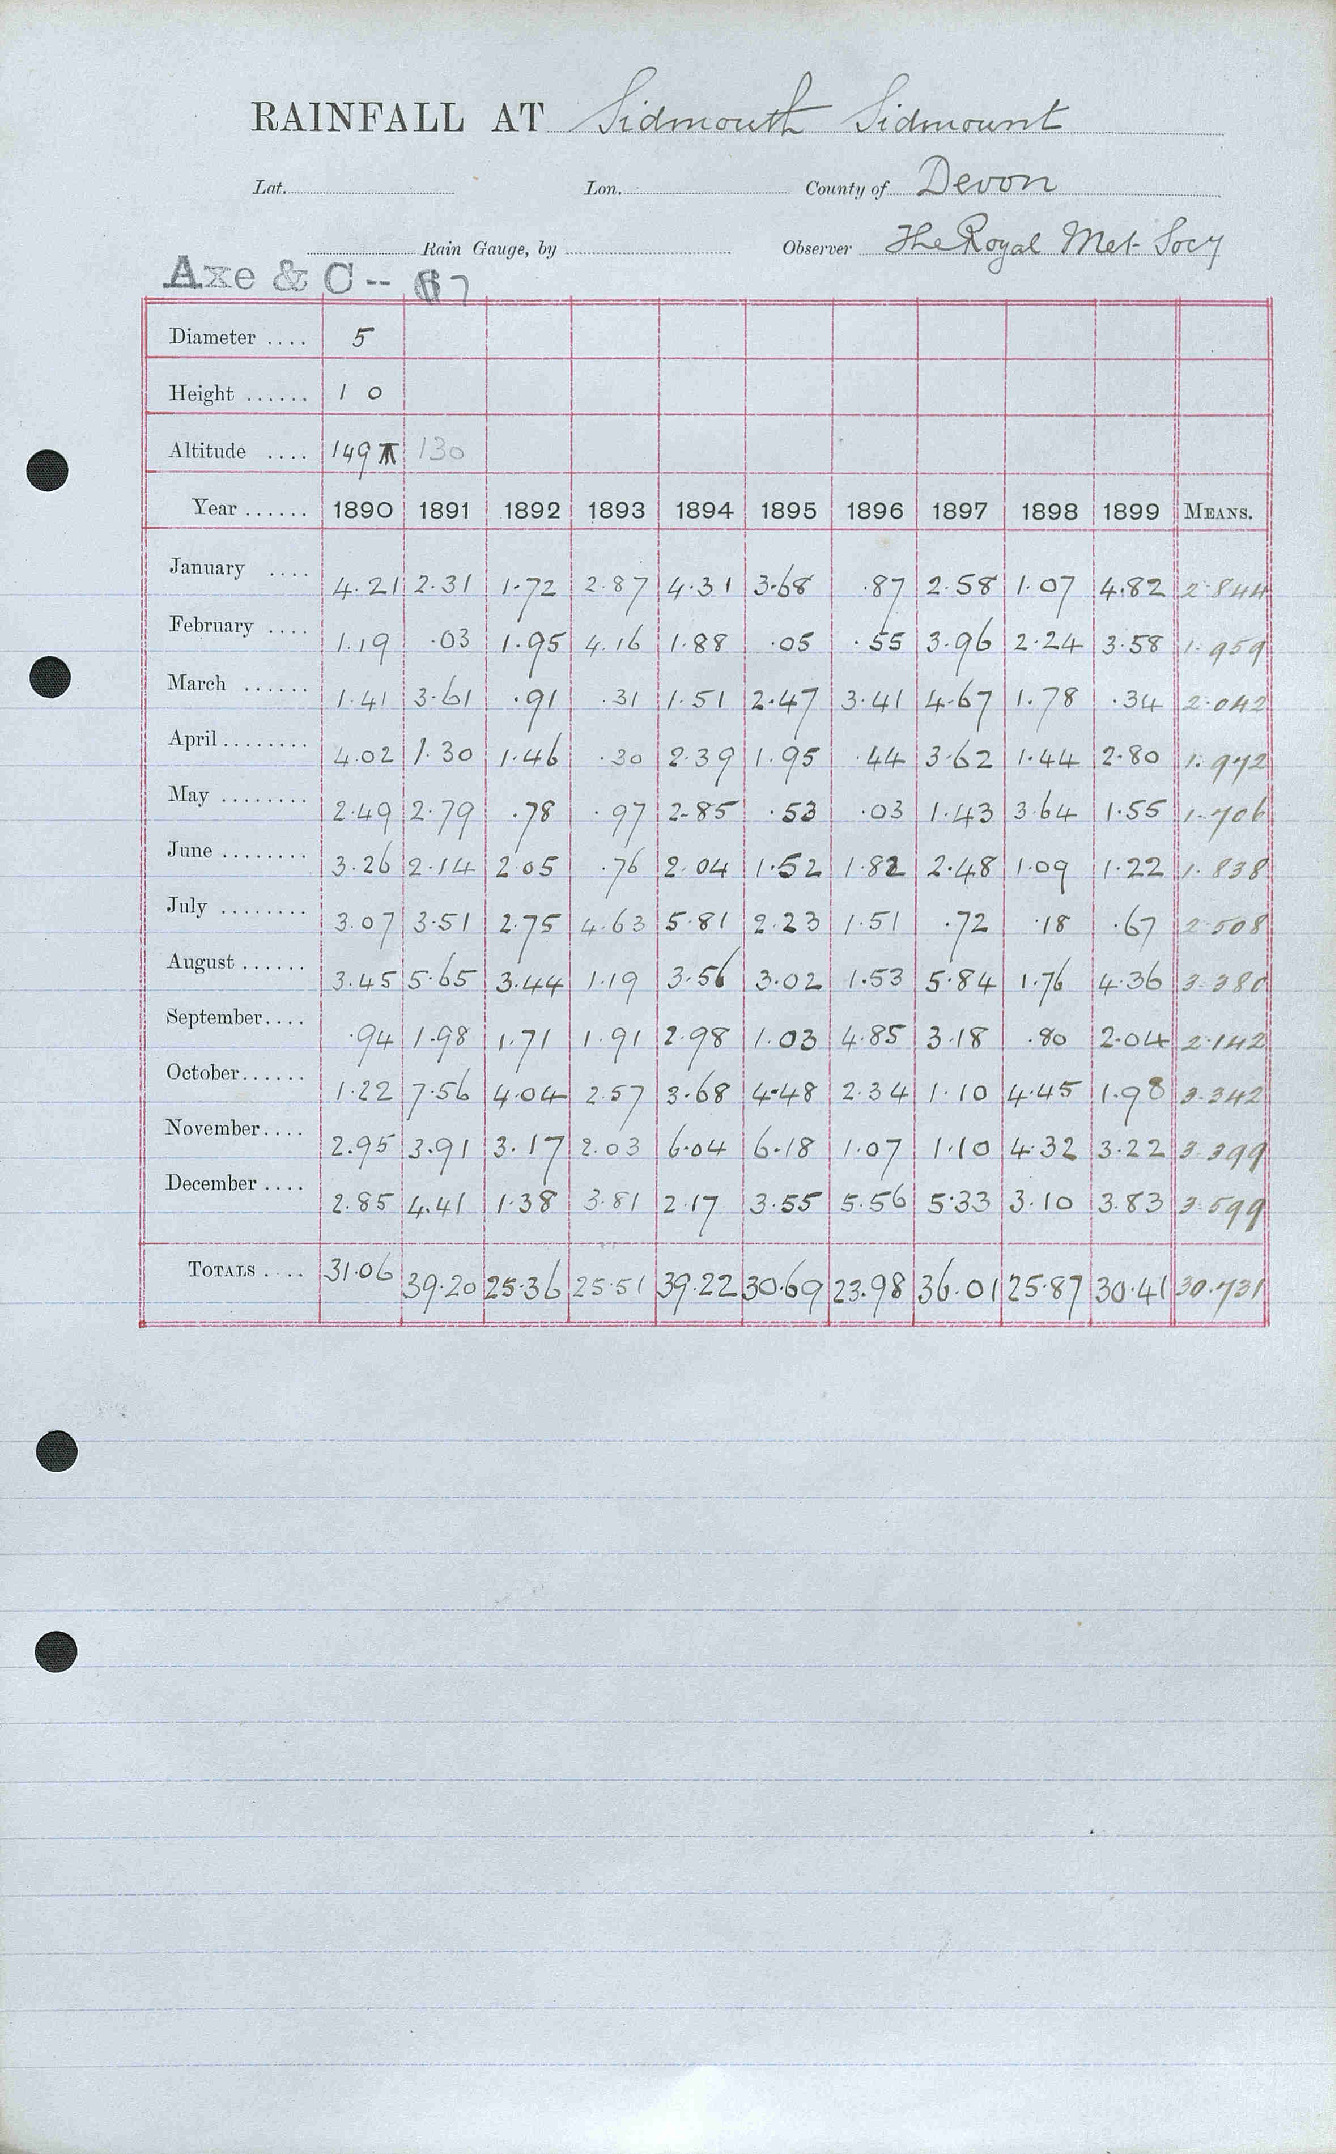 RAINFALL AT Sidmouth Sidmount
Lat. Lon. County of Devon
Rain Gauge, by Observer The Royal Met. Socy
Axe & C--
Diameter .... 5
Height ...... 1 0
Altitude .... 149 130
Year ...... 1890 1891 1892 1893 1894 1895 1896 1897 1898 1899 MEANS.
January .... 4.21 2.31 1.72 2.87 4.31 3.68 .87 2.58 1.07 4.82 2.844
February .... 1.19 .03 1.95 4.16 1.88 .05 .55 3.96 2.24 3.58 1.959
March ...... 1.41 3.61 .91 .31 1.51 2.47 3.41 4.67 1.78 .34 2.042
April ........ 4.02 1.30 1.46 .30 2.39 1.95 .44 3.62 1.44 2.80 1.972
May ........ 2.49 2.79 .78 .97 2.85 .53 .03 1.43 3.64 1.55 1.706
June ........ 3.26 2.14 2.05 .76 2.04 1.52 1.82 2.48 1.09 1.22 1.838
July ........ 3.07 3.51 2.75 4.63 5.81 2.23 1.51 .72 .18 .67 2.508
August ...... 3.45 5.65 3.44 1.19 3.56 3.02 1.53 5.84 1.76 4.36 3.380
September .... .94 1.98 1.71 1.91 2.98 1.03 4.85 3.18 .80 2.04 2.142
October ...... 1.22 7.56 4.04 2.57 3.68 4.48 2.34 1.10 4.45 1.98 3.342
November .... 2.95 3.91 3.17 2.03 6.04 6.18 1.07 1.10 4.32 3.22 3.399
December .... 2.85 4.41 1.38 3.81 2.17 3.55 5.56 5.33 3.10 3.83 3.599
TOTALS .... 31.06 39.20 25.36 25.51 39.22 30.69 23.98 36.01 25.87 30.41 30.731